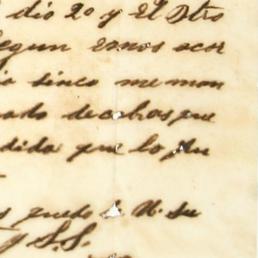 dio 2º y el Otro
segun emos acor
sinco me man
ado de cabos que
dida que lo pu
quedo a U. Su
y S.S.